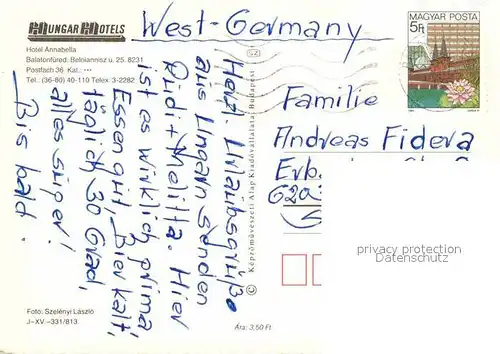 HUNGAR HOTELS
Hotel Annabella
Balatonfüred: Beloiannisz u. 25. 8231
Postfach 36 Kat.: ***
Tel.: (36-80) 40-110 Telex: 3-2282
West-Germany
MAGYAR POSTA
5Ft
Herzl. Urlaubsgrüße
aus Ungarn senden
Rudi + Melitta. Hier
ist es wirklich prima,
Essen gut, Bier kalt,
täglich 30 Grad,
alles super!
Bis bald
Familie
Andreas Fidera
Erb
620
© Képzőművészeti Alap Kiadóvállalata, Budapest
privacy protection
Datenschutz
Foto: Szelényi László
J–XV.–331/813.
Ára: 3,50 Ft